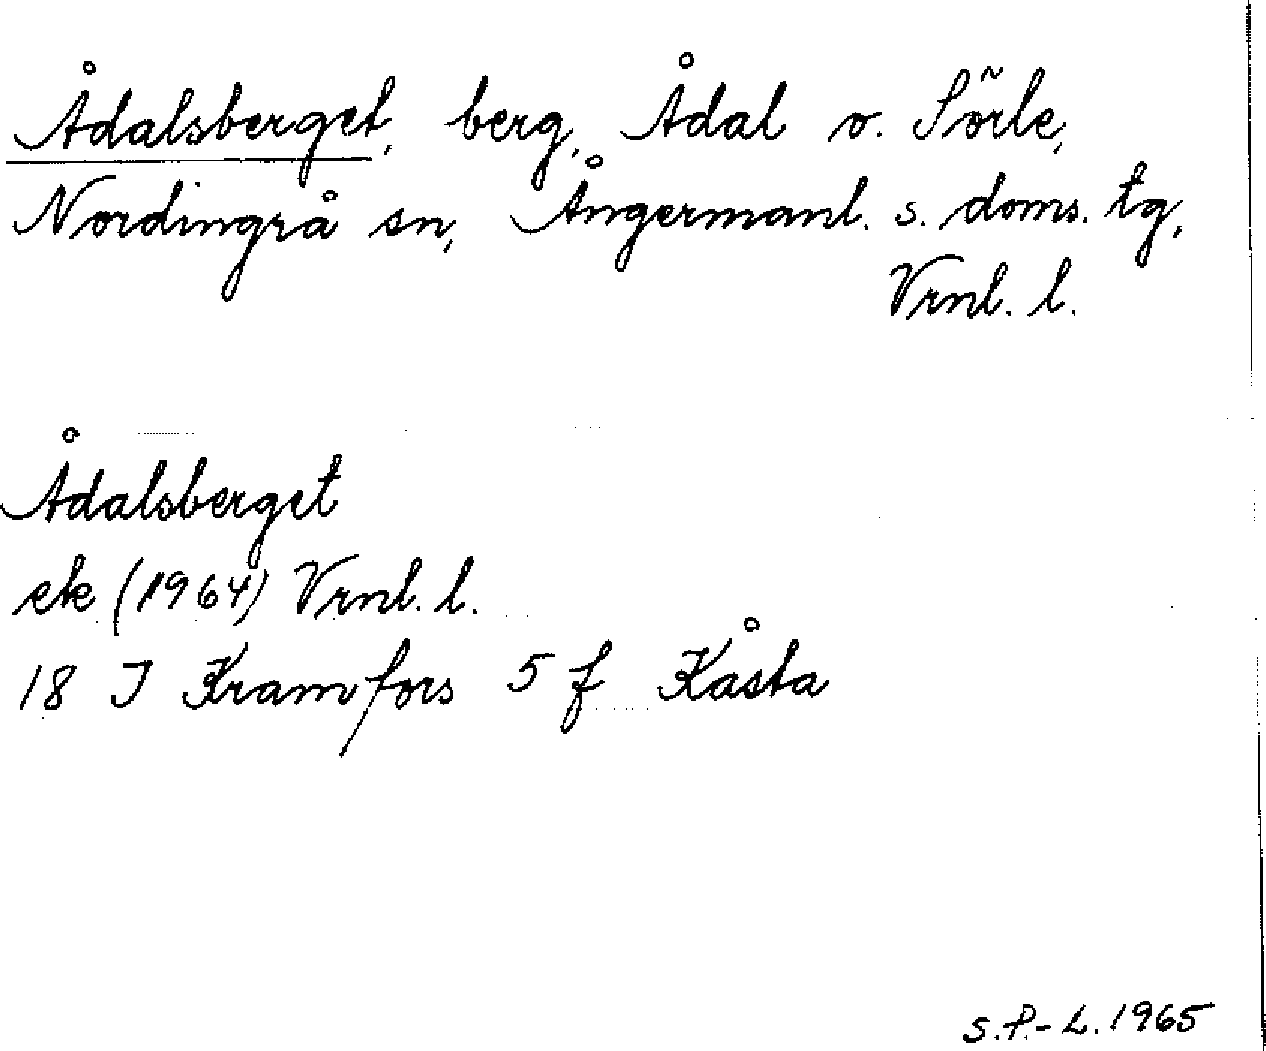 Ådalsberget, berg, Ådal o. Sörle,
Nordingrå sn, Ångermanl. s. doms. tg,
Vrnl. l.
Ådalsberget
ek (1964) Vrnl. l.
18 I Kramfors 5 f Kåsta
S.P.-L. 1965